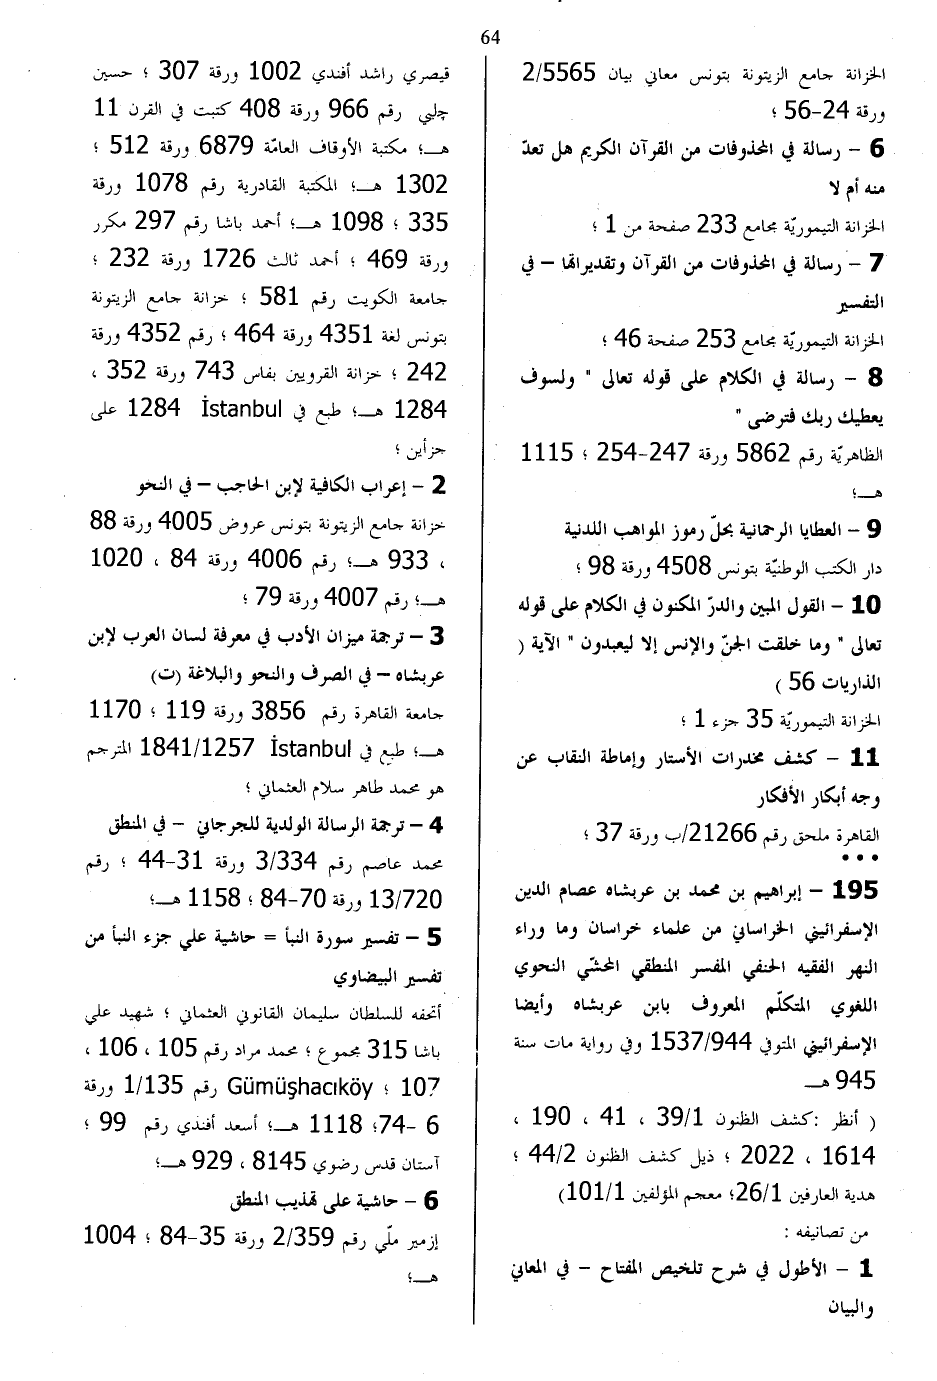 64
الخزانة جامع الزيتونة بتونس معاني بيان 2/5565
ورقة 24-56 ؛
6 - رسالة في المحذوفات من القرآن الكريم هل تعدّ
منه أم لا
الخزانة التيموريّة مجامع 233 صفحة من 1 ؛
7 - رسالة في المحذوفات من القرآن وتقديراتها - في
التفسير
الخزانة التيموريّة مجامع 253 صفحة 46 ؛
8 - رسالة في الكلام على قوله تعالى " ولسوف
يعطيك ربك فترضى "
الظاهريّة رقم 5862 ورقة 247-254 ؛ 1115
هـ؛
9 - العطايا الرحمانية بحلّ رموز المواهب اللدنية
دار الكتب الوطنيّة بتونس 4508 ورقة 98 ؛
10 - القول المبين والدرّ المكنون في الكلام على قوله
تعالى " وما خلقت الجنّ والإنس إلا ليعبدون " الآية (
الذاريات 56 )
الخزانة التيموريّة 35 جزء 1 ؛
11 - كشف مخدرات الأستار وإماطة النقاب عن
وجه أبكار الأفكار
القاهرة ملحق رقم 21266/ب ورقة 37 ؛
•••
195 - إبراهيم بن محمد بن عربشاه عصام الدين
الإسفرائيني الخراساني من علماء خراسان وما وراء
النهر الفقيه الحنفي المفسر المنطقي المحشّي النحوي
اللغوي المتكلّم المعروف بابن عربشاه وأيضا
الإسفرائيني المتوفى 1537/944 وفي رواية مات سنة
945 هـ
( أنظر :كشف الظنون 39/1 ، 41 ، 190 ،
1614 ، 2022 ؛ ذيل كشف الظنون 44/2 ؛
هدية العارفين 26/1؛ معجم المؤلفين 101/1)
من تصانيفه :
1 - الأطول في شرح تلخيص المفتاح - في المعاني
والبيان
قيصري راشد أفندي 1002 ورقة 307 ؛ حسين
چلبي رقم 966 ورقة 408 كتبت في القرن 11
هـ؛ مكتبة الأوقاف العامّة 6879 ورقة 512 ؛
1302 هـ؛ المكتبة القادرية رقم 1078 ورقة
335 ؛ 1098 هـ؛ أحمد باشا رقم 297 مكرر
ورقة 469 ؛ أحمد ثالث 1726 ورقة 232 ؛
جامعة الكويت رقم 581 ؛ خزانة جامع الزيتونة
بتونس لغة 4351 ورقة 464 ؛ رقم 4352 ورقة
242 ؛ خزانة القرويين بفاس 743 ورقة 352 ،
1284 هـ؛ طبع في İstanbul 1284 على
جزأين ؛
2 - إعراب الكافية لإبن الحاجب - في النحو
خزانة جامع الزيتونة بتونس عروض 4005 ورقة 88
، 933 هـ؛ رقم 4006 ورقة 84 ، 1020
هـ؛ رقم 4007 ورقة 79 ؛
3 - ترجمة ميزان الأدب في معرفة لسان العرب لإبن
عربشاه - في الصرف والنحو والبلاغة (ت)
جامعة القاهرة رقم 3856 ورقة 119 ؛ 1170
هـ؛ طبع في İstanbul 1841/1257 المترجم
هو محمد طاهر سلام العثماني ؛
4 - ترجمة الرسالة الولدية للجرجاني - في المنطق
محمد عاصم رقم 3/334 ورقة 31-44 ؛ رقم
13/720 ورقة 70-84 ؛ 1158 هـ؛
5 - تفسير سورة النبأ = حاشية علي جزء النبأ من
تفسير البيضاوي
أتحفه للسلطان سليمان القانوني العثماني ؛ شهيد علي
باشا 315 مجموع ؛ محمد مراد رقم 105 ، 106 ،
107 ؛ Gümüşhacıköy رقم 1/135 ورقة
6 -74؛ 1118 هـ؛ أسعد أفندي رقم 99 ؛
آستان قدس رضوي 8145 ، 929 هـ؛
6 - حاشية على تهذيب المنطق
إزمير ملّي رقم 2/359 ورقة 35-84 ؛ 1004
هـ؛